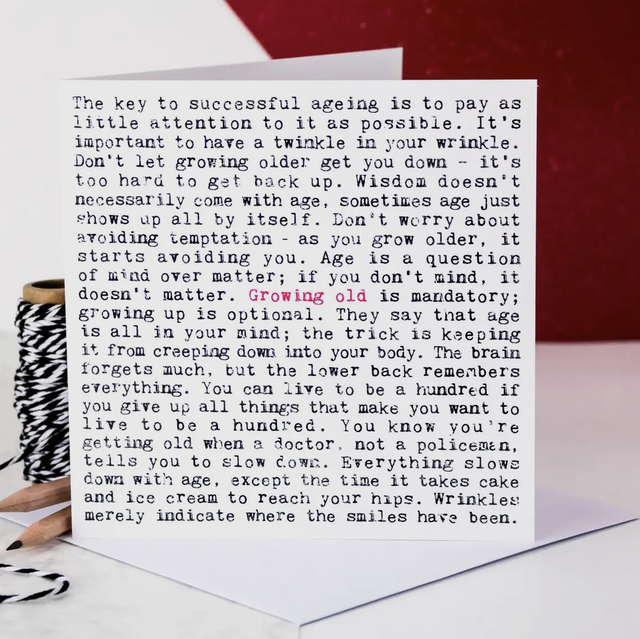 The key to successful ageing is to pay as
little attention to it as possible. It's
important to have a twinkle in your wrinkle.
Don't let growing older get you down - it's
too hard to get back up. Wisdom doesn't
necessarily come with age, sometimes age just
shows up all by itself. Don't worry about
avoiding temptation - as you grow older, it
starts avoiding you. Age is a question
of mind over matter; if you don't mind, it
doesn't matter. Growing old is mandatory;
growing up is optional. They say that age
is all in your mind; the trick is keeping
it from creeping down into your body. The brain
forgets much, but the lower back remembers
everything. You can live to be a hundred if
you give up all things that make you want to
live to be a hundred. You know you're
getting old when a doctor, not a policeman,
tells you to slow down. Everything slows
down with age, except the time it takes cake
and ice cream to reach your hips. Wrinkles
merely indicate where the smiles have been.